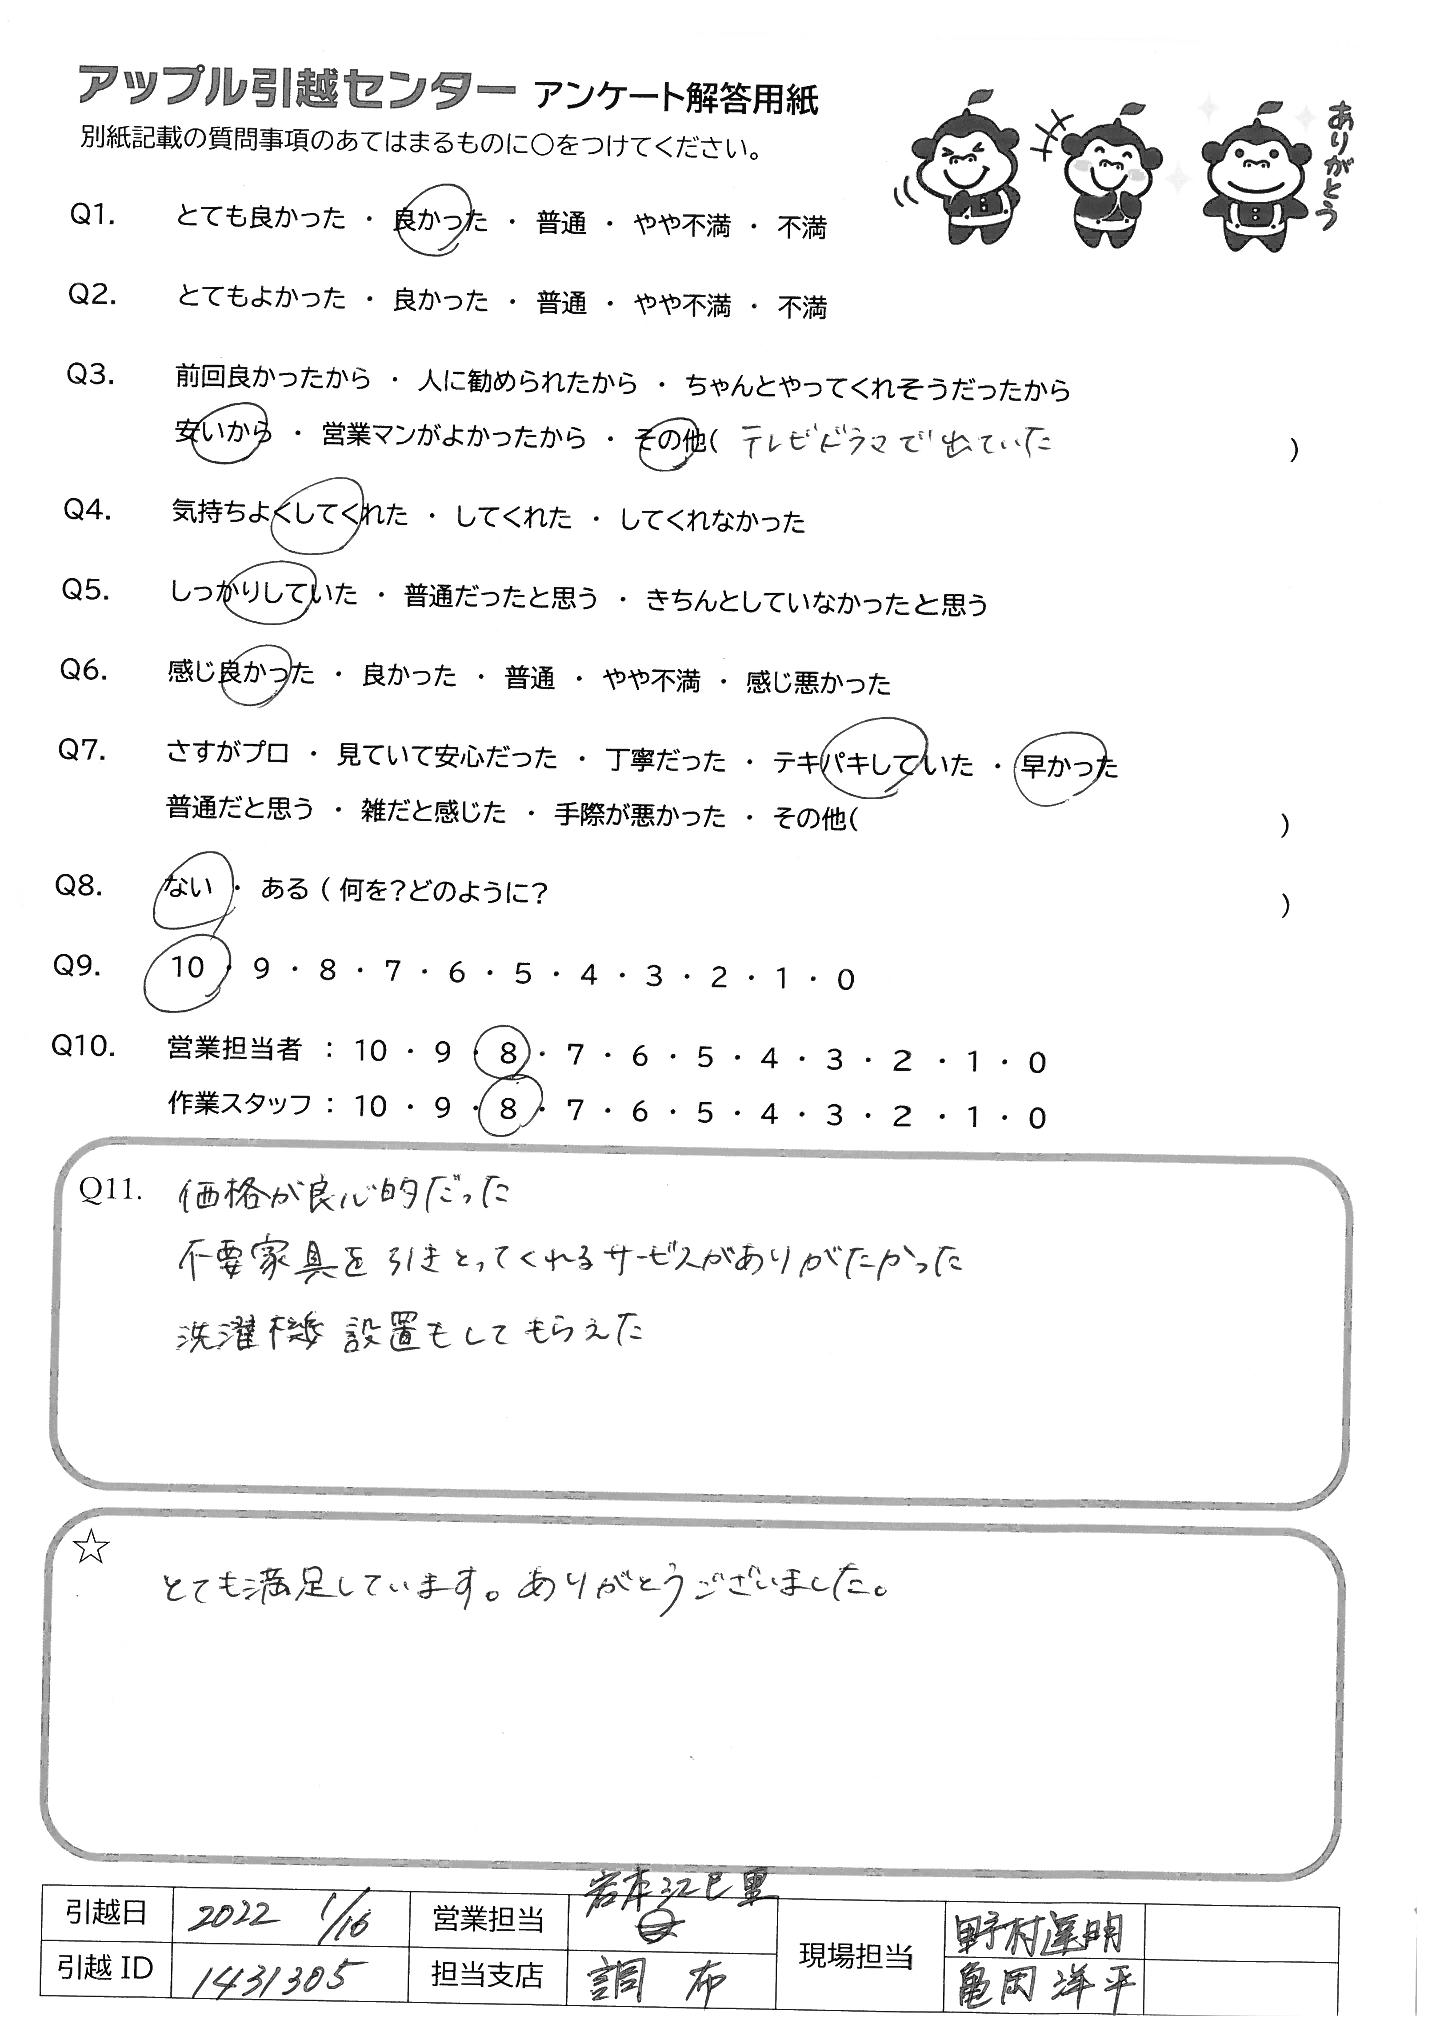 アップル引越センター アンケート解答用紙
別紙記載の質問事項のあてはまるものに○をつけてください。
ありがとう
Q1. とても良かった ・ 良かった ・ 普通 ・ やや不満 ・ 不満
Q2. とてもよかった ・ 良かった ・ 普通 ・ やや不満 ・ 不満
Q3. 前回良かったから ・ 人に勧められたから ・ ちゃんとやってくれそうだったから
安いから ・ 営業マンがよかったから ・ その他( テレビドラマで出ていた )
Q4. 気持ちよくしてくれた ・ してくれた ・ してくれなかった
Q5. しっかりしていた ・ 普通だったと思う ・ きちんとしていなかったと思う
Q6. 感じ良かった ・ 良かった ・ 普通 ・ やや不満 ・ 感じ悪かった
Q7. さすがプロ ・ 見ていて安心だった ・ 丁寧だった ・ テキパキしていた ・ 早かった
普通だと思う ・ 雑だと感じた ・ 手際が悪かった ・ その他( )
Q8. ない ・ ある ( 何を?どのように? )
Q9. 10 ・ 9 ・ 8 ・ 7 ・ 6 ・ 5 ・ 4 ・ 3 ・ 2 ・ 1 ・ 0
Q10. 営業担当者 : 10 ・ 9 ・ 8 ・ 7 ・ 6 ・ 5 ・ 4 ・ 3 ・ 2 ・ 1 ・ 0
作業スタッフ : 10 ・ 9 ・ 8 ・ 7 ・ 6 ・ 5 ・ 4 ・ 3 ・ 2 ・ 1 ・ 0
Q11. 価格が良心的だった
不要家具を引きとってくれるサービスがありがたかった
洗濯機設置もしてもらえた
☆
とても満足しています。ありがとうございました。
引越日 2022 1/16 営業担当 岩本 現場担当 野村
引越 ID 1431305 担当支店 調布 亀岡洋平